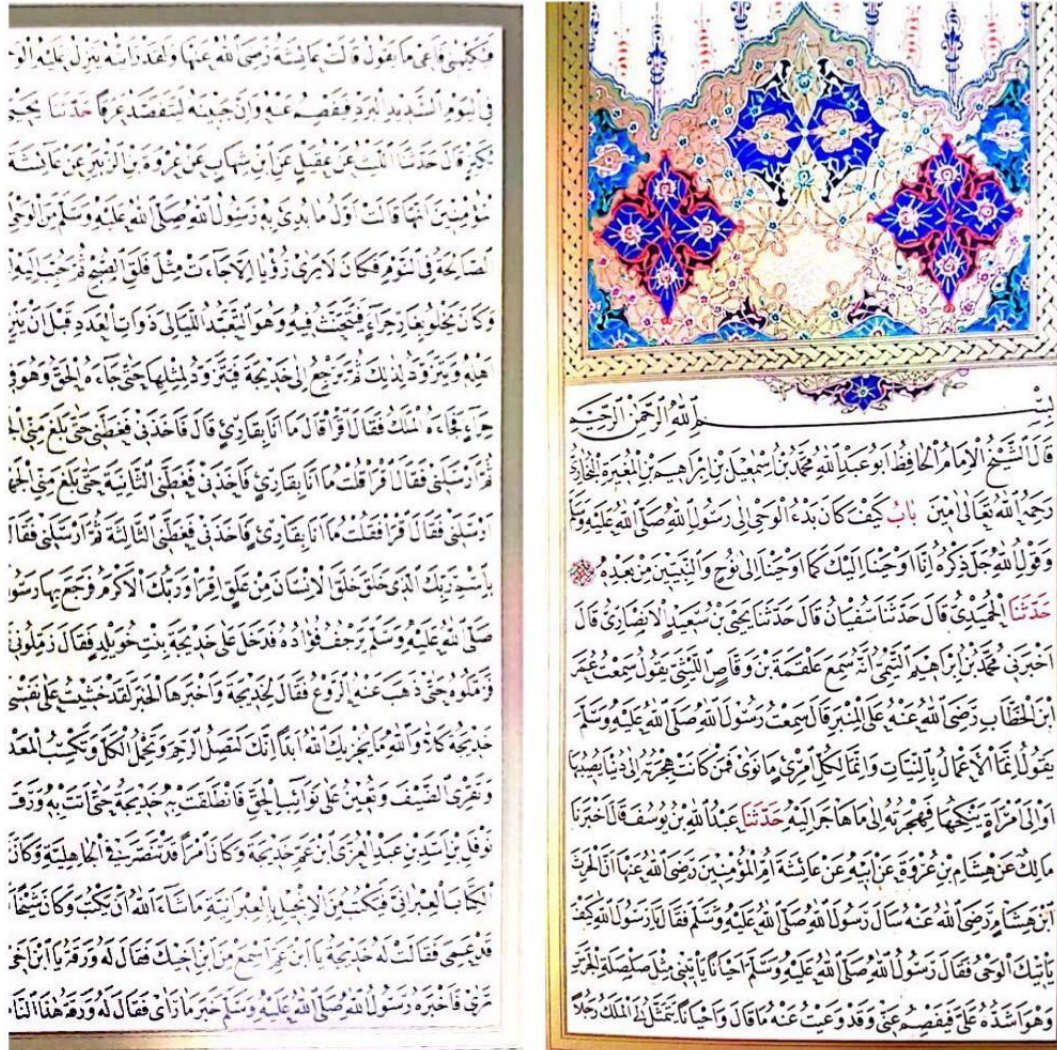 بسم الله الرحمن الرحيم
قال الشيخ الامام الحافظ ابو عبد الله محمد بن اسمعيل بن ابراهيم بن المغيرة البخاري
رحمه الله تعالى امين باب كيف كان بدء الوحي الى رسول الله صلى الله عليه وسلم
وقول الله جل ذكره انا اوحينا اليك كما اوحينا الى نوح والنبيين من بعده
حدثنا الحميدي قال حدثنا سفيان قال حدثنا يحيى بن سعيد الانصاري قال
اخبرني محمد بن ابراهيم التيمي انه سمع علقمة بن وقاص الليثي يقول سمعت عمر
ابن الخطاب رضى الله عنه على المنبر قال سمعت رسول الله صلى الله عليه وسلم
يقول انما الاعمال بالنيات وانما لكل امرئ ما نوى فمن كانت هجرته الى دنيا يصيبها
او الى امراة ينكحها فهجرته الى ما هاجر اليه حدثنا عبد الله بن يوسف قال اخبرنا
مالك عن هشام بن عروة عن ابيه عن عائشة ام المؤمنين رضى الله عنها ان الحرث
ابن هشام رضى الله عنه سال رسول الله صلى الله عليه وسلم فقال يا رسول الله كيف
ياتيك الوحي فقال رسول الله صلى الله عليه وسلم احيانا ياتيني مثل صلصلة الجرس
وهو اشده علي فيفصم عني وقد وعيت عنه ما قال واحيانا يتمثل لي الملك رجلا
فيكلمني فاعي ما يقول قالت عائشة رضى الله عنها ولقد رايته ينزل عليه الوحي
في اليوم الشديد البرد فيفصم عنه وان جبينه ليتفصد عرقا حدثنا يحيى
بكير قال حدثنا الليث عن عقيل عن ابن شهاب عن عروة بن الزبير عن عائشة
المؤمنين انها قالت اول ما بدئ به رسول الله صلى الله عليه وسلم من الوحي
الصالحة في النوم فكان لا يرى رؤيا الا جاءت مثل فلق الصبح ثم حبب اليه
وكان يخلو بغار حراء فيتحنث فيه وهو التعبد الليالي ذوات العدد قبل ان ينز
اهله ويتزود لذلك ثم يرجع الى خديجة فيتزود لمثلها حتى جاءه الحق وهو في
حراء فجاءه الملك فقال اقرا قال ما انا بقارئ قال فاخذني فغطني حتى بلغ مني الج
ثم ارسلني فقال اقرا قلت ما انا بقارئ فاخذني فغطني الثانية حتى بلغ مني الجه
ارسلني فقال اقرا فقلت ما انا بقارئ فاخذني فغطني الثالثة ثم ارسلني فقال
باسم ربك الذي خلق خلق الانسان من علق اقرا وربك الاكرم فرجع بها رسول
صلى الله عليه وسلم يرجف فؤاده فدخل على خديجة بنت خويلد فقال زملوني
فزملوه حتى ذهب عنه الروع فقال لخديجة واخبرها الخبر لقد خشيت على نفسي
خديجة كلا والله ما يخزيك الله ابدا انك لتصل الرحم وتحمل الكل وتكسب المعد
وتقري الضيف وتعين على نوائب الحق فانطلقت به خديجة حتى اتت به ورقة
نوفل بن اسد بن عبد العزى ابن عم خديجة وكان امرا قد تنصر في الجاهلية وكان
الكتاب العبراني فيكتب من الانجيل بالعبرانية ما شاء الله ان يكتب وكان شيخا
قد عمى فقالت له خديجة يا ابن عم اسمع من ابن اخيك فقال له ورقة يا ابن اخي
ترى فاخبره رسول الله صلى الله عليه وسلم خبر ما راى فقال له ورقة هذا النا